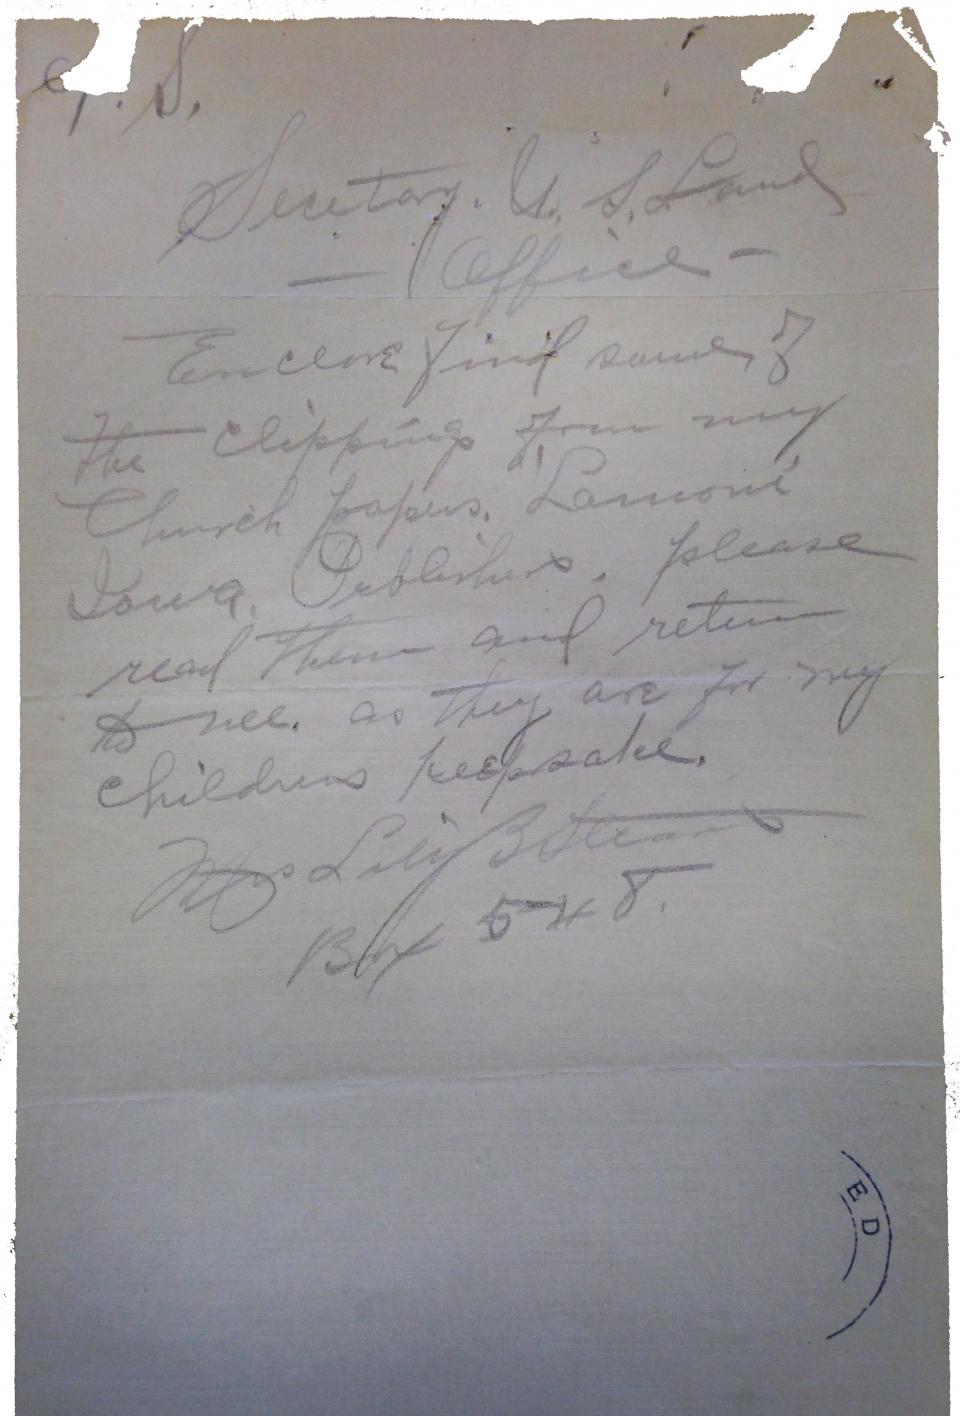 G. S.
Secetary. U. S. Land
— Office —
Enclose find some of
the clippings from my
Church papers. Lamoni
Iowa. Publishers. please
read them and return
to me. as they are for my
childrens keepsake.
Mrs Lily B
Box 548.
E D